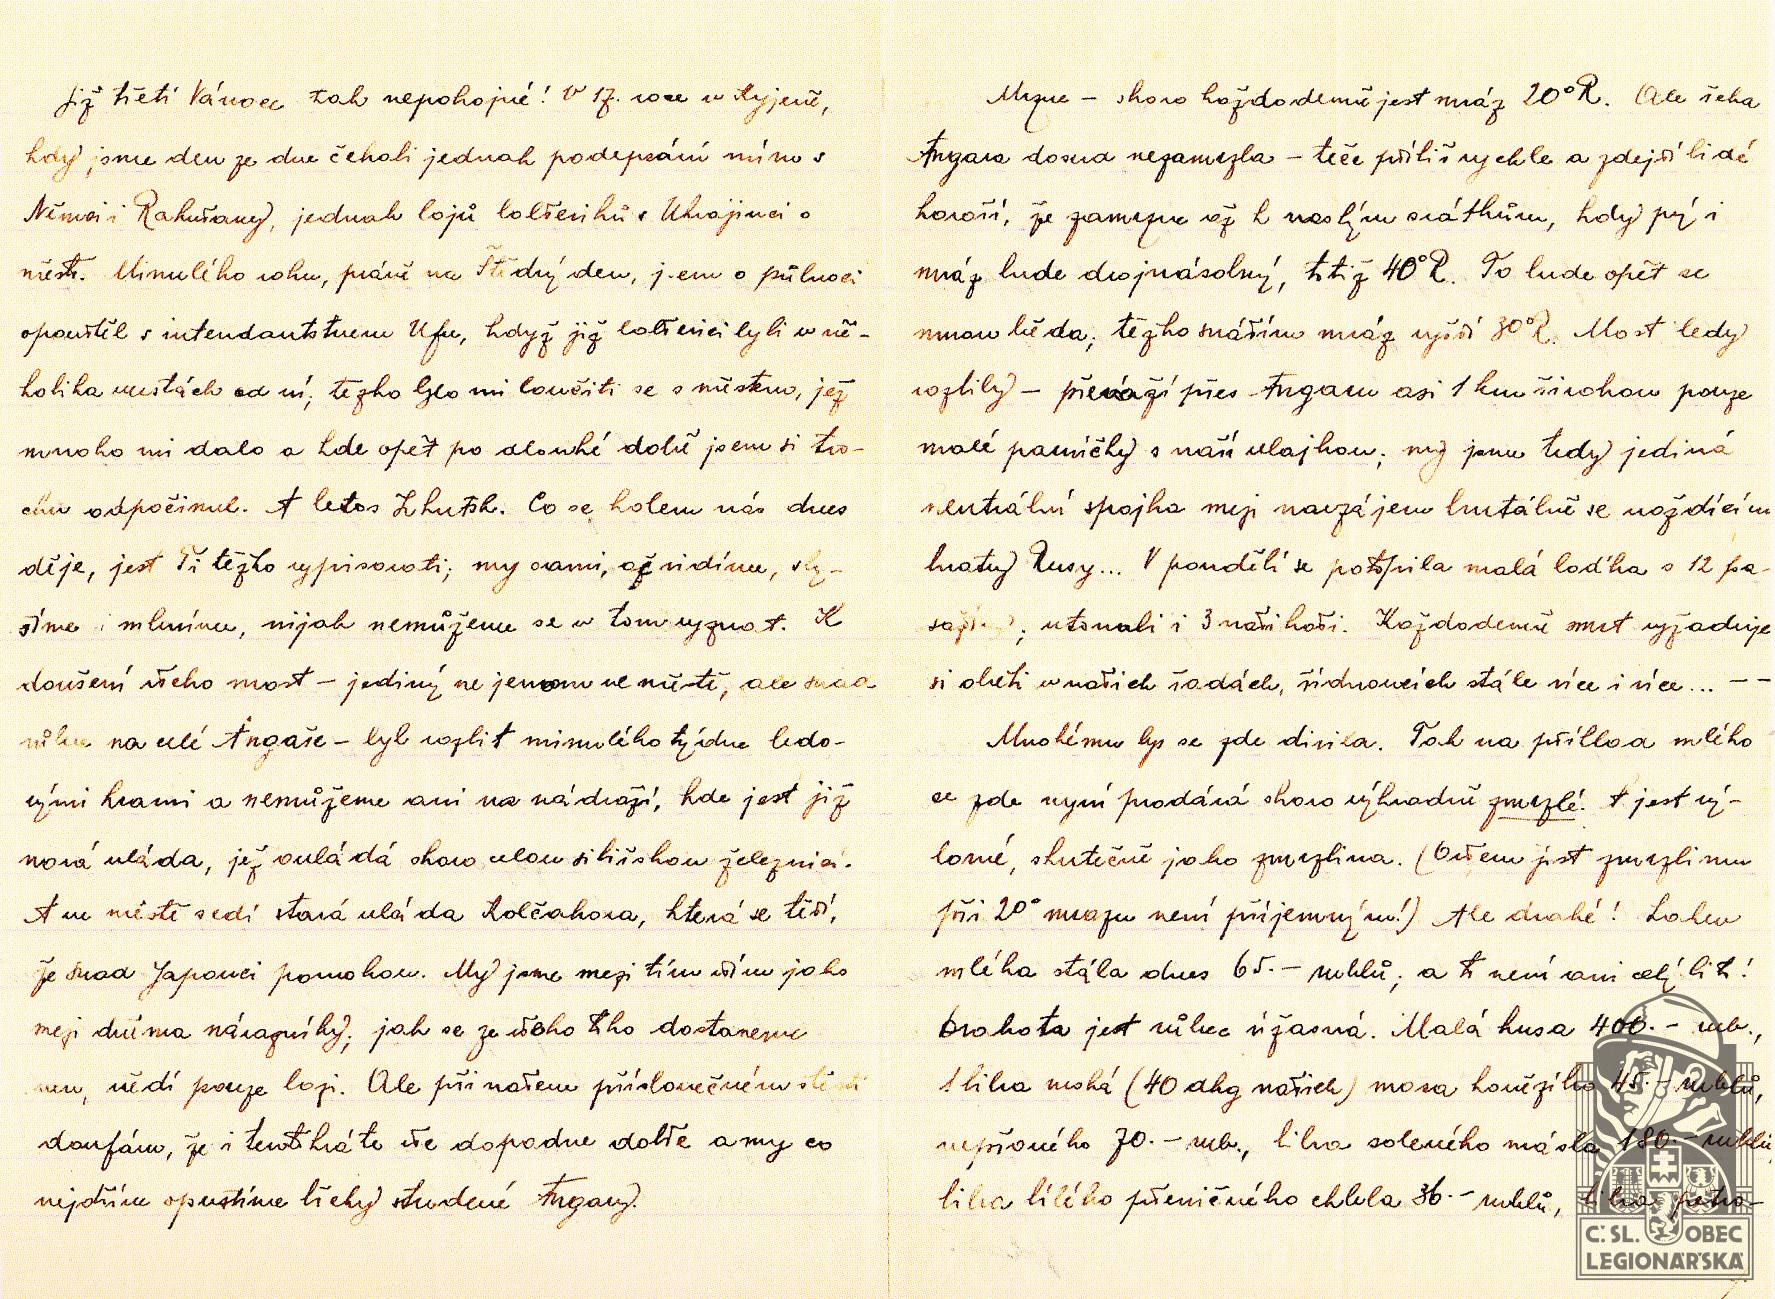 Již třetí Vánoce tak nepokojné! V 17. roce v Kyjevě,
kdy jsme den ze dne čekali jednak podepsání míru s
Němci i Rakušany, jednak bojů bolševiků s Ukrajinci o
město. Minulého roku, právě na Štědrý den, jsem o půlnoci
opouštěl s intendantstvem Ufu, když již bolševici byli v ně-
kolika verstách od ní; těžko bylo mi loučiti se s městem, jež
mnoho mi dalo a kde opět po dlouhé době jsem si tro-
chu odpočinul. A letos Irkutsk. Co se kolem nás dnes
děje, jest Ti těžko vypisovati; my sami, ač vidíme, sly-
šíme i mluvíme, nijak nemůžeme se v tom vyznat. K
doušení všeho most – jediný ne jenom ve městě, ale snad
vůbec na celé Angaře – byl rozbit minulého týdne ledo-
vými krami a nemůžeme ani na nádraží, kde jest již
nová vláda, jež ovládá skoro celou sibiřskou železnici.
A ve městě sedí stará vláda Kolčakova, která se těší,
že snad Japonci pomohou. My jsme mezi tím vším jako
mezi dvěma nárazníky; jak se ze všeho toho dostaneme
ven, vědí pouze bozi. Ale při našem příslovečném štěstí
doufám, že i tentokráte vše dopadne dobře a my co
nejdříve opustíme břehy studené Angary.
Mrzne – skoro každodenně jest mráz 20°R. Ale řeka
Angara dosud nezamrzla – teče příliš rychle a zdejší lidé
hovoří, že zamrzne až k novým svátkům, kdy prý i
mráz bude dvojnásobný, totiž 40°R. To bude opět se
mnou běda; těžko snáším mráz vyšší 30°R. Most ledy
rozbily – převáží přes Angaru asi 1 km širokou pouze
malé parníčky s naší vlajkou; my jsme tedy jediná
neutrální spojka mezi navzájem brutálně se vraždícími
bratry Rusy... V pondělí se potopila malá loďka s 12 pa-
sažíry; utonuli i 3 naši hoši. Každodenně smrt vyžaduje
si oběti v našich řadách, řídnoucích stále více i více... – –
Mnohému bys se zde divila. Tak na příklad mléko
se zde nyní prodává skoro výhradně zmrzlé. A jest vý-
borné, skutečně jako zmrzlina. (Ovšem jíst zmrzlinu
při 20° mrazu není příjemným!) Ale drahé! Lahev
mléka stála dnes 65.– rublů; a to není ani celý litr!
Drahota jest vůbec úžasná. Malá husa 400.– rub.,
1 libra ruská (40 dkg našich) masa hovězího 45.– rublů,
vepřového 70.– rub., libra soleného másla 180.– rublů,
libra bílého pšeničného chleba 36.– rublů, libra petro-
Č. SL. OBEC
LEGIONÁŘSKÁ